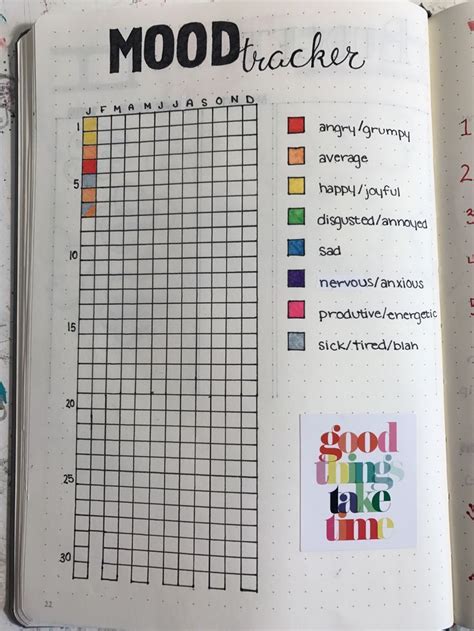 MOOD tracker
J F M A M J J A S O N D
1
5
10
15
20
25
30
angry/grumpy
average
happy/joyful
disgusted/annoyed
sad
nervous/anxious
produtive/energetic
sick/tired/blah
good
things
take
time
22
1
2
3